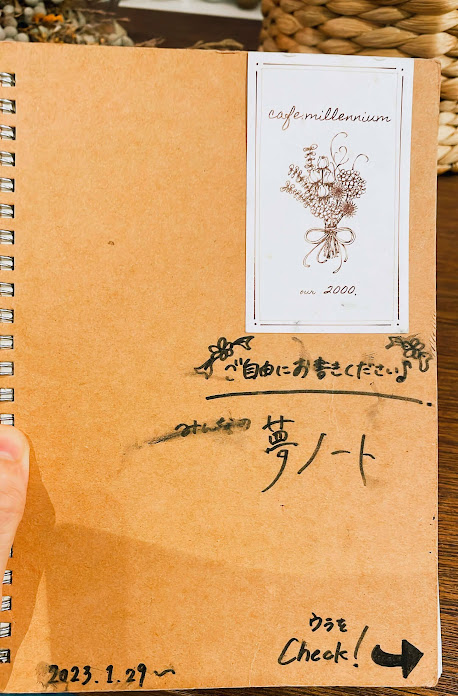 cafe.millennium
our 2000.
ご自由にお書きください♪
みんなの
夢ノート
ウラを
Check!
2023.1.29〜